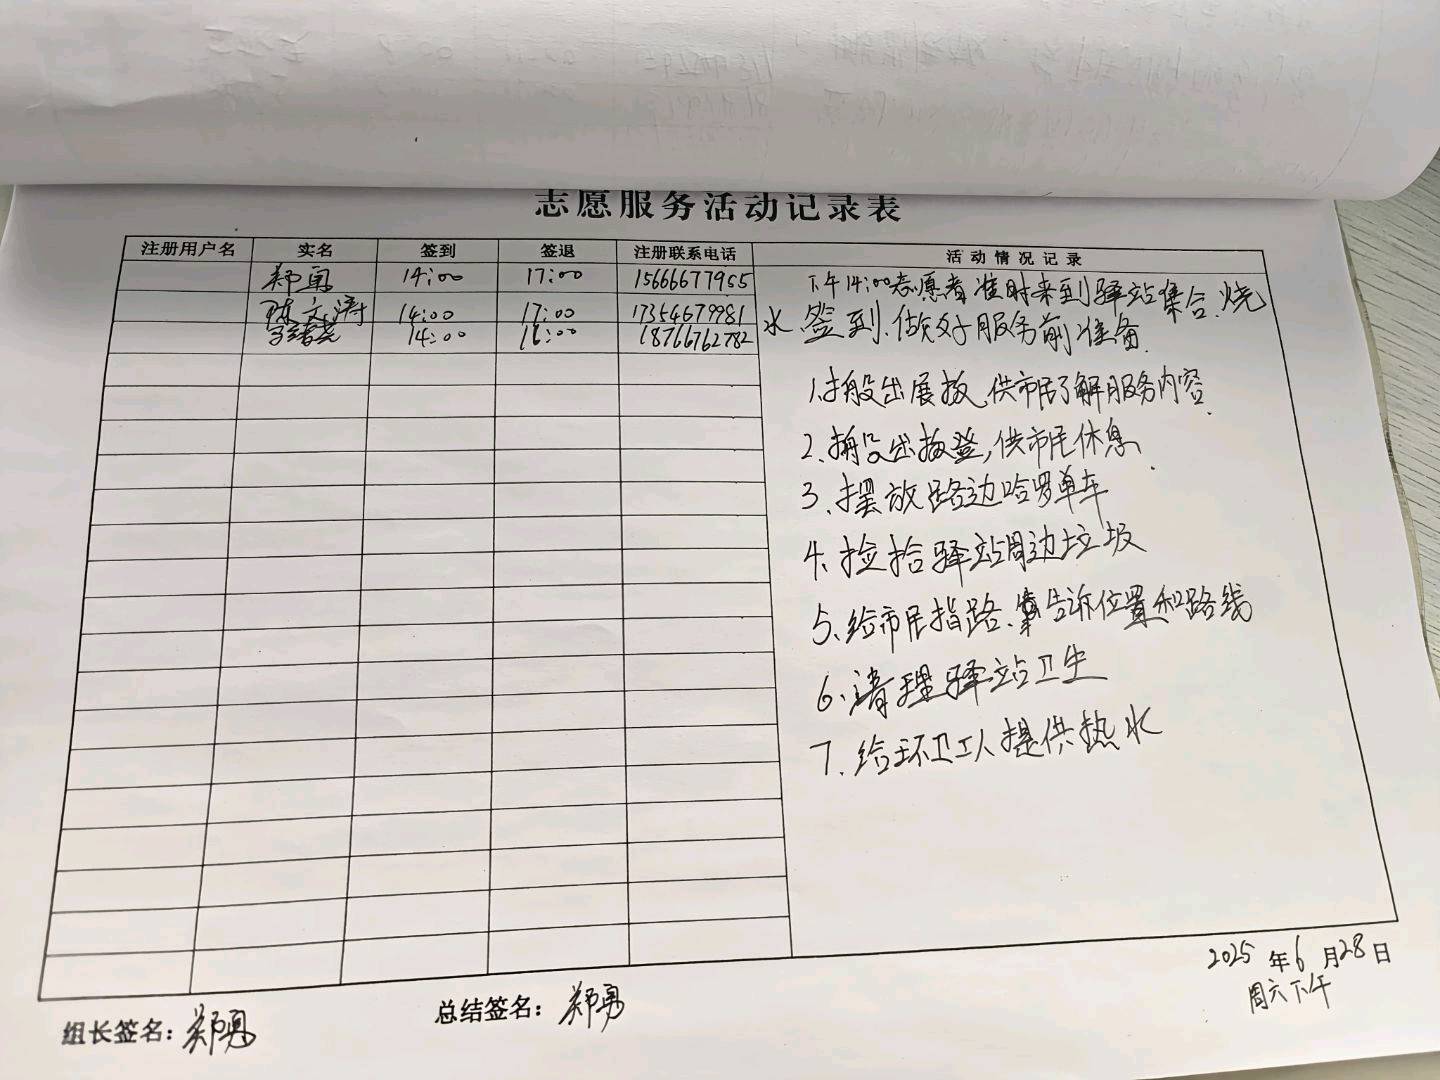 志愿服务活动记录表
注册用户名 实名 签到 签退 注册联系电话 活动情况记录
郑勇 14:00 17:00 15666677955
陈文涛 14:00 17:00 17354679981
14:00 16:00 18766762782
下午14:00志愿者准时来到驿站集合、烧
水、签到、做好服务前准备.
1.搬出展板,供市民了解服务内容.
2.搬出板登,供市民休息.
3.摆放路边哈罗单车
4.捡拾驿站周边垃圾
5.给市民指路、告诉位置和路线
6.清理驿站卫生
7.给环卫工人提供热水
2025年6月28日
周六下午
组长签名:郑勇
总结签名:郑勇